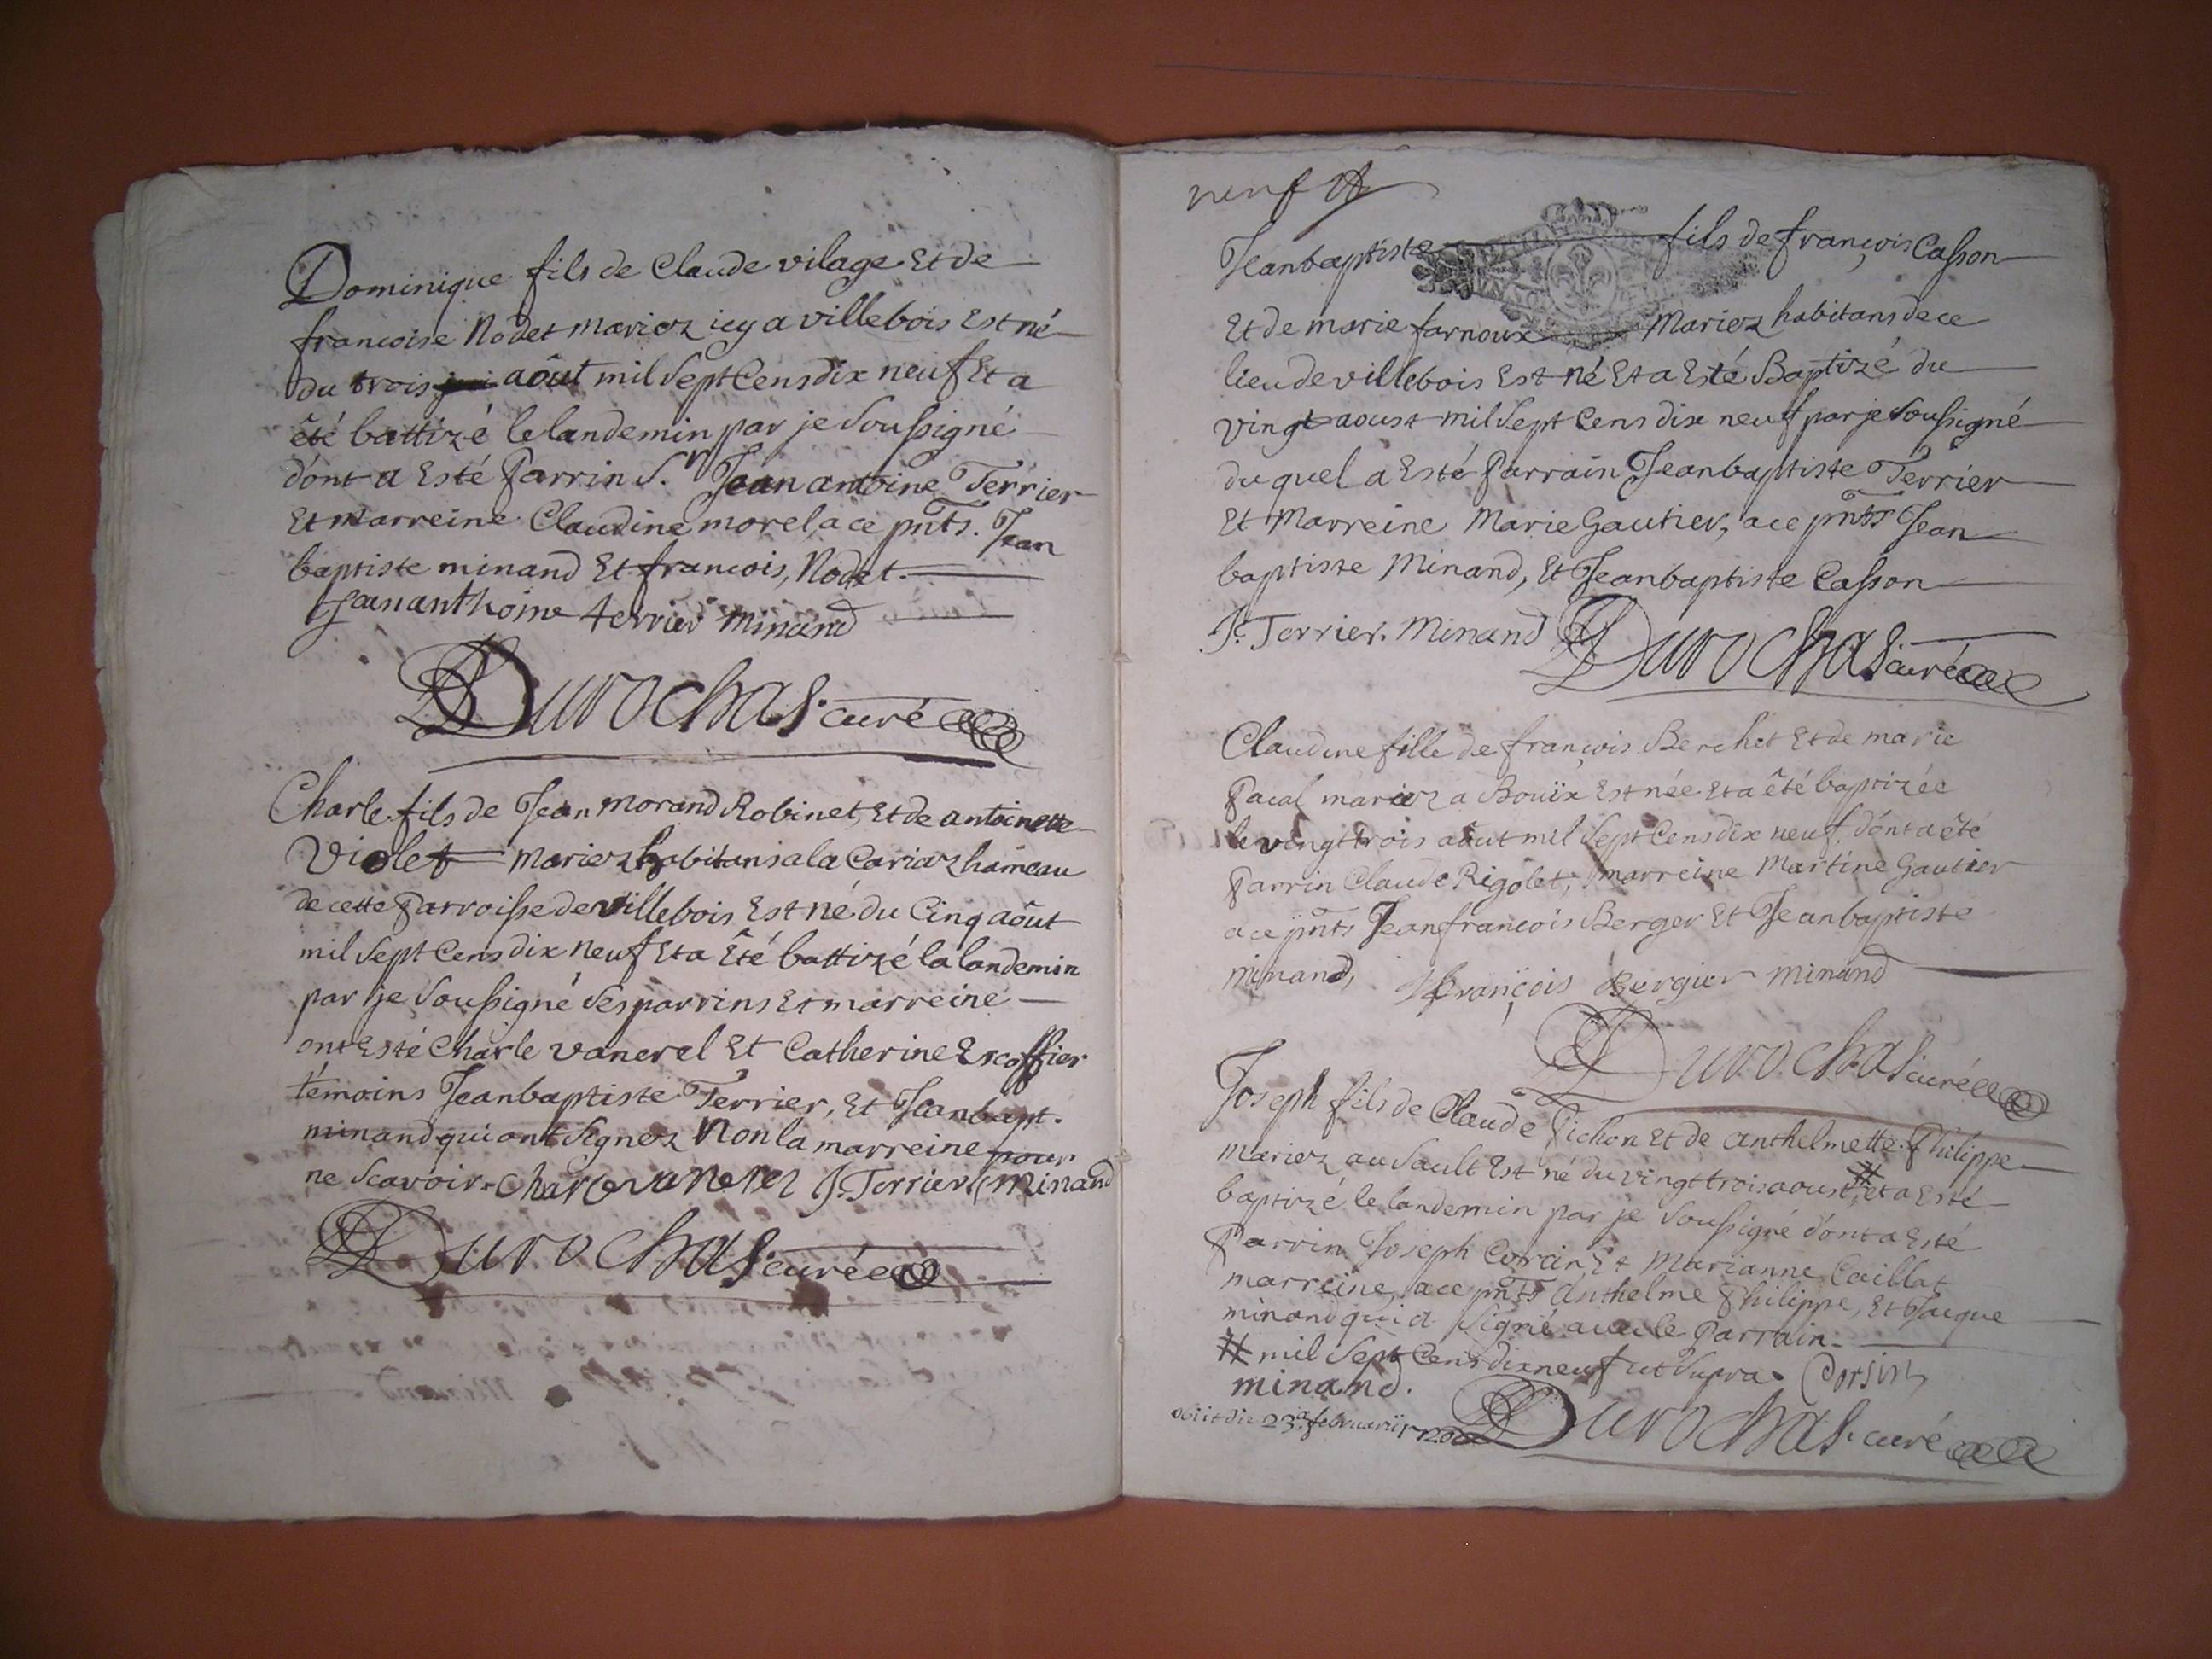 Dominique fils de Claude vilage Et de
francoise Nodet mariez icy a villebois Est né
du trois aôut mil Sept Cens dix neuf Et a
êté battizé le landemin par je Soussigné
dont a Esté Parrin S.r Jean antoine Terrier
Et marreine Claudine morel, a ce pnts. Jean
baptiste minand Et francois, Nodet.
Jean anthoine terrier minand
Durochas. curé
Charle fils de Jean morand Robinet, Et de antoinette
Violet mariez habitans a la Cariaz hameau
de cette Parroisse de villebois Est né du Cinq aôut
mil Sept Cens dix neuf Et a Eté battizé la landemin
par je Soussigné Ses parrins Et marreine
ont Esté Charle vanerel Et Catherine Escoffier
témoins Jean baptiste Terrier, Et Jean bapt.
minand qui ont Signez Non la marreine pour
ne Scavoir. J. Terrier. minand
Durochas. curé
neuf
Jean baptiste fils de françois Casson
Et de marie farnoux Mariez habitans de ce
lieu de villebois Est né Et a Esté Baptizé du
vingt aoust mil Sept Cens dix neuf par je Soussigné
du quel a Esté Parrain Jean baptiste Terrier
Et Marreine Marie Gautier, a ce pnts Jean
baptiste Minand, Et Jean baptiste Casson
J. Terrier. Minand Durochas curé
Claudine fille de françois Berchet Et de marie
Pacal mariez a Bouïx Est née Et a êté baptizée
le vingt trois aôut mil Sept Cens dix neuf, dont a êté
Parrin Claude Rigolet, marreine Martine Gautier
a ce pnts Jean francois Berger Et Jean baptiste
minand, françois Bergier minand
Durochas curé
Joseph fils de Claude Pichon Et de anthelmette Philippe
mariez au Sault Est né du vingt trois aoust, # et a Esté
baptizé le landemin par je Soussigné dont a Esté
Parrin Joseph Corcin Et Marianne Caillat
marreine, a ce pnts Anthelme Philippe, Et Jacque
minand qui a Signé avec le Parrain.
# mil Sept Cens dix neuf ut Supra. Corsin
minand.
obiit die 23a februarii 1720 Durochas. curé